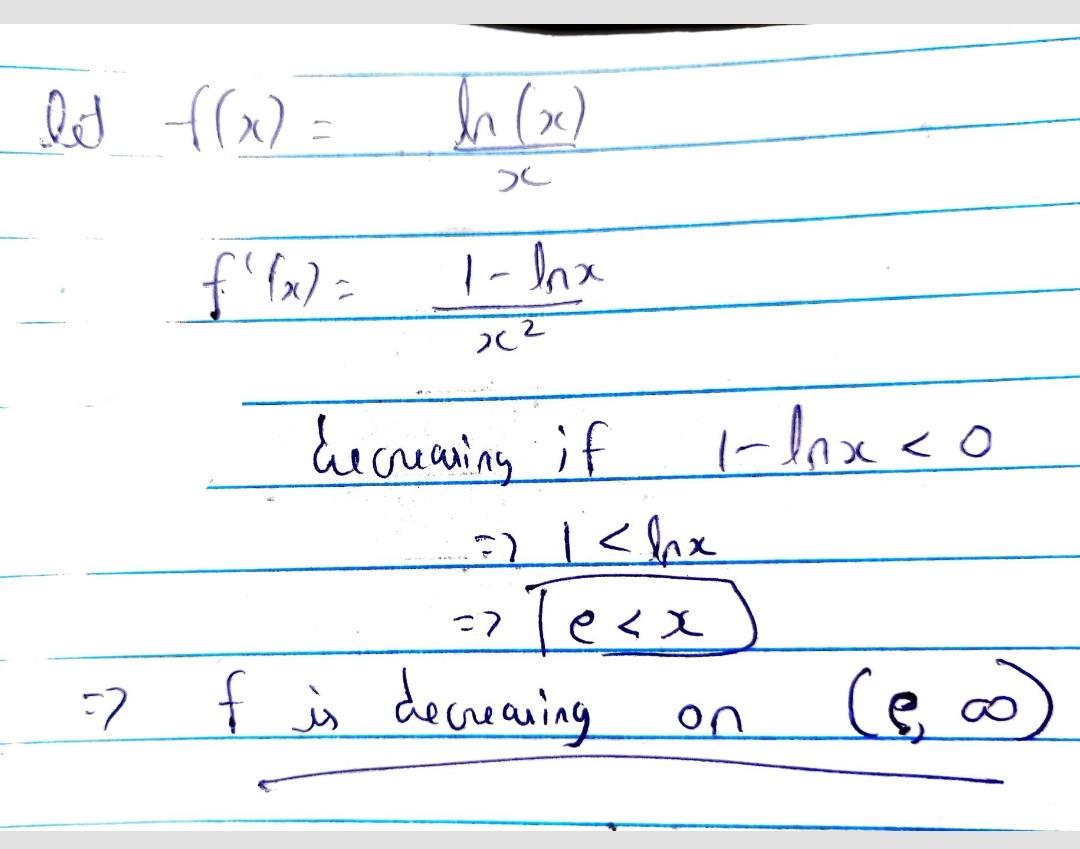 let f(x) = ln(x)/x
f'(x) = 1 - lnx/x²
decreasing if 1 - lnx < 0
=> 1 < lnx
=> e < x
=> f is decreasing on (e, ∞)